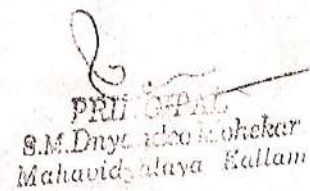 PRINCIPAL
S.M.Dnyandeo Mohekar
Mahavidyalaya Kallam